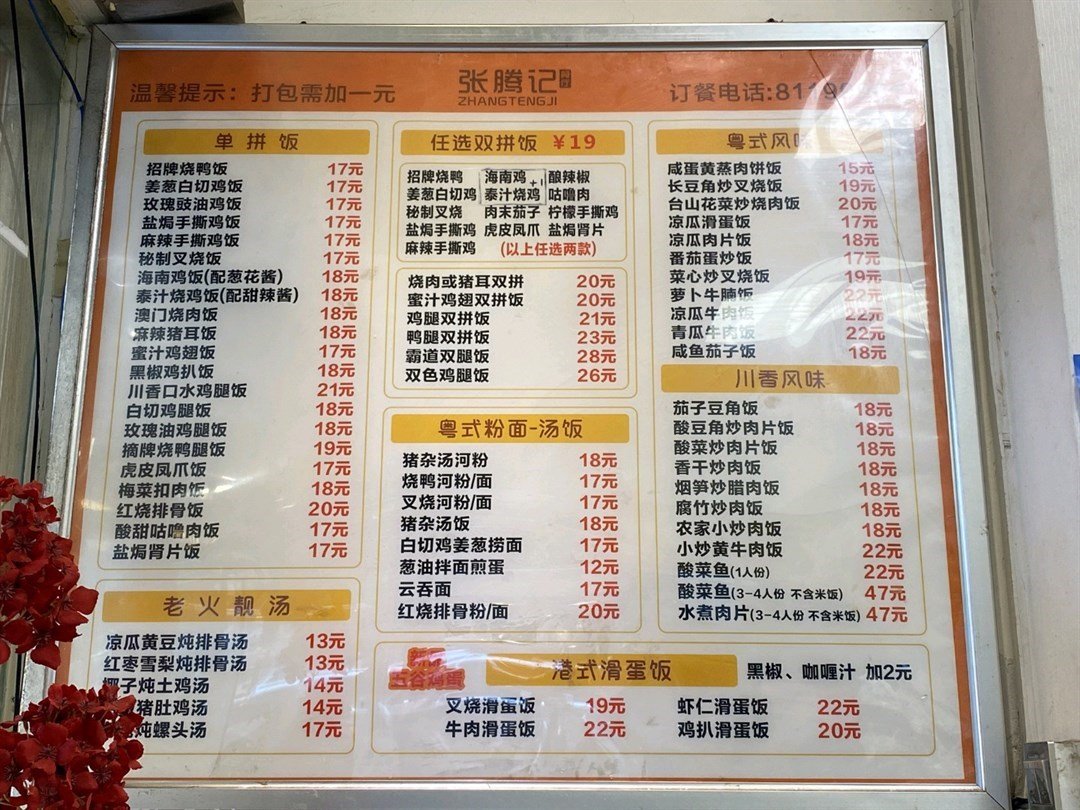 温馨提示：打包需加一元
张腾记
ZHANGTENGJI
订餐电话:8119
单拼饭
招牌烧鸭饭 17元
姜葱白切鸡饭 17元
玫瑰豉油鸡饭 17元
盐焗手撕鸡饭 17元
麻辣手撕鸡饭 17元
秘制叉烧饭 17元
海南鸡饭(配葱花酱) 18元
泰汁烧鸡饭(配甜辣酱) 18元
澳门烧肉饭 18元
麻辣猪耳饭 18元
蜜汁鸡翅饭 17元
黑椒鸡扒饭 18元
川香口水鸡腿饭 21元
白切鸡腿饭 18元
玫瑰油鸡腿饭 18元
摘牌烧鸭腿饭 19元
虎皮凤爪饭 17元
梅菜扣肉饭 18元
红烧排骨饭 20元
酸甜咕噜肉饭 17元
盐焗肾片饭 17元
老火靓汤
凉瓜黄豆炖排骨汤 13元
红枣雪梨炖排骨汤 13元
椰子炖土鸡汤 14元
猪肚鸡汤 14元
炖螺头汤 17元
任选双拼饭 ￥19
招牌烧鸭 海南鸡 酿辣椒
姜葱白切鸡 泰汁烧鸡 +1 咕噜肉
秘制叉烧 肉末茄子 柠檬手撕鸡
盐焗手撕鸡 虎皮凤爪 盐焗肾片
麻辣手撕鸡 (以上任选两款)
烧肉或猪耳双拼 20元
蜜汁鸡翅双拼饭 20元
鸡腿双拼饭 21元
鸭腿双拼饭 23元
霸道双腿饭 28元
双色鸡腿饭 26元
粤式粉面-汤饭
猪杂汤河粉 18元
烧鸭河粉/面 17元
叉烧河粉/面 17元
猪杂汤饭 18元
白切鸡姜葱捞面 17元
葱油拌面煎蛋 12元
云吞面 17元
红烧排骨粉/面 20元
粤式风味
咸蛋黄蒸肉饼饭 15元
长豆角炒叉烧饭 19元
台山花菜炒烧肉饭 20元
凉瓜滑蛋饭 17元
凉瓜肉片饭 18元
番茄蛋炒饭 17元
菜心炒叉烧饭 19元
萝卜牛腩饭 22元
凉瓜牛肉饭 22元
青瓜牛肉饭 22元
咸鱼茄子饭 18元
川香风味
茄子豆角饭 18元
酸豆角炒肉片饭 18元
酸菜炒肉片饭 18元
香干炒肉饭 18元
烟笋炒腊肉饭 18元
腐竹炒肉饭 18元
农家小炒肉饭 18元
小炒黄牛肉饭 22元
酸菜鱼(1人份) 22元
酸菜鱼(3-4人份 不含米饭) 47元
水煮肉片(3-4人份 不含米饭) 47元
五谷鸡蛋
港式滑蛋饭
黑椒、咖喱汁 加2元
叉烧滑蛋饭 19元 虾仁滑蛋饭 22元
牛肉滑蛋饭 22元 鸡扒滑蛋饭 20元